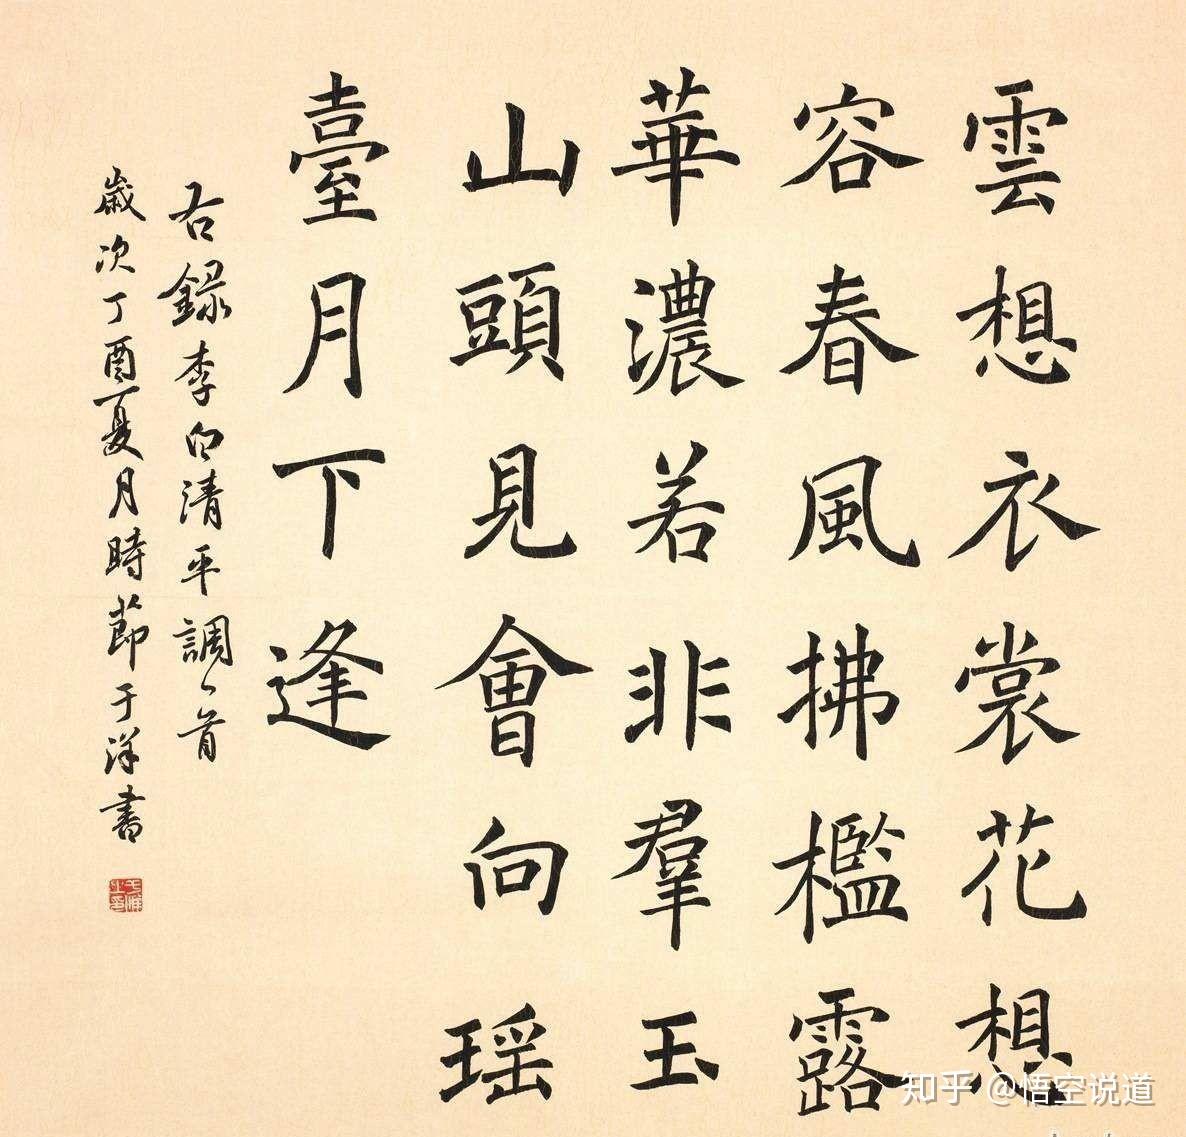 雲想衣裳花想
容春風拂檻露
華濃若非羣玉
山頭見會向瑶
臺月下逢
右錄李白清平調一首
歲次丁酉夏月時節于洋書
于洋之印
知乎 @悟空说道